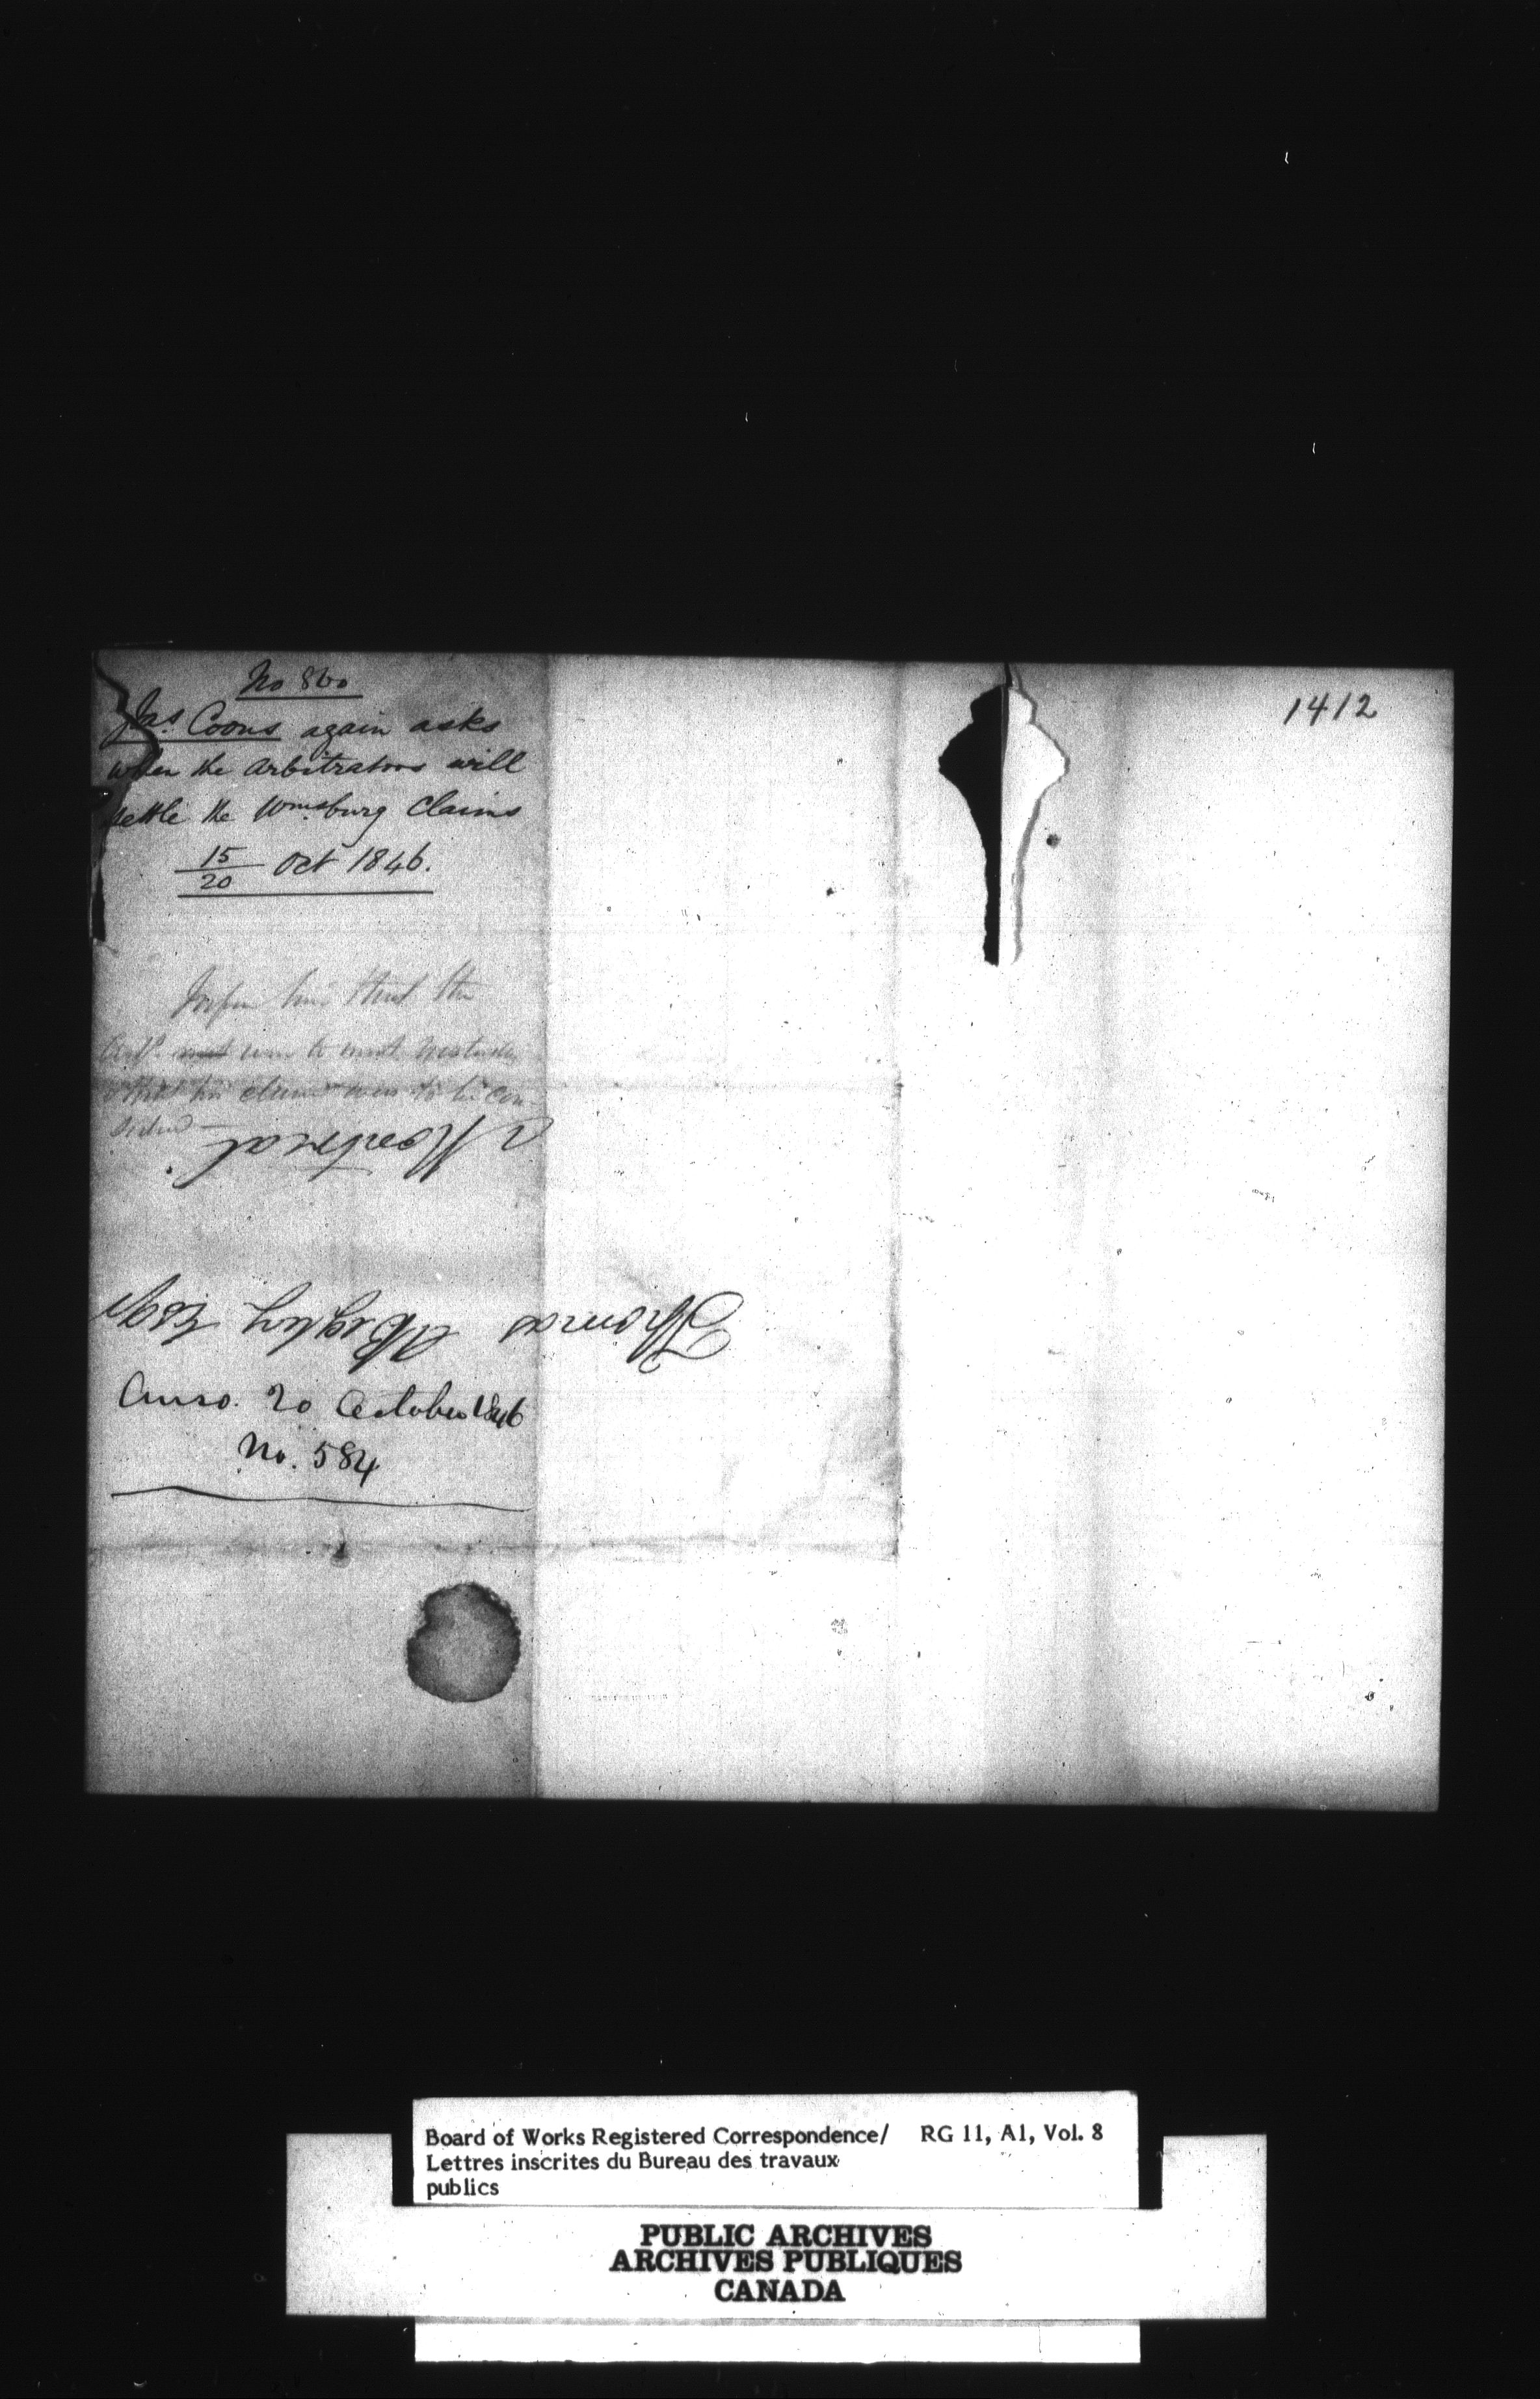 No 860
Jas. Coons again asks
when the Arbitrators will
settle the Wmsburg Claims
15/20 Oct 1846.
1412
him that the
to meet
that his claim was to be con-
Montreal
Thomas A Begley Esqr
Ansd. 20 October 1846
No. 584
Board of Works Registered Correspondence/ RG 11, A1, Vol. 8
Lettres inscrites du Bureau des travaux
publics
PUBLIC ARCHIVES
ARCHIVES PUBLIQUES
CANADA